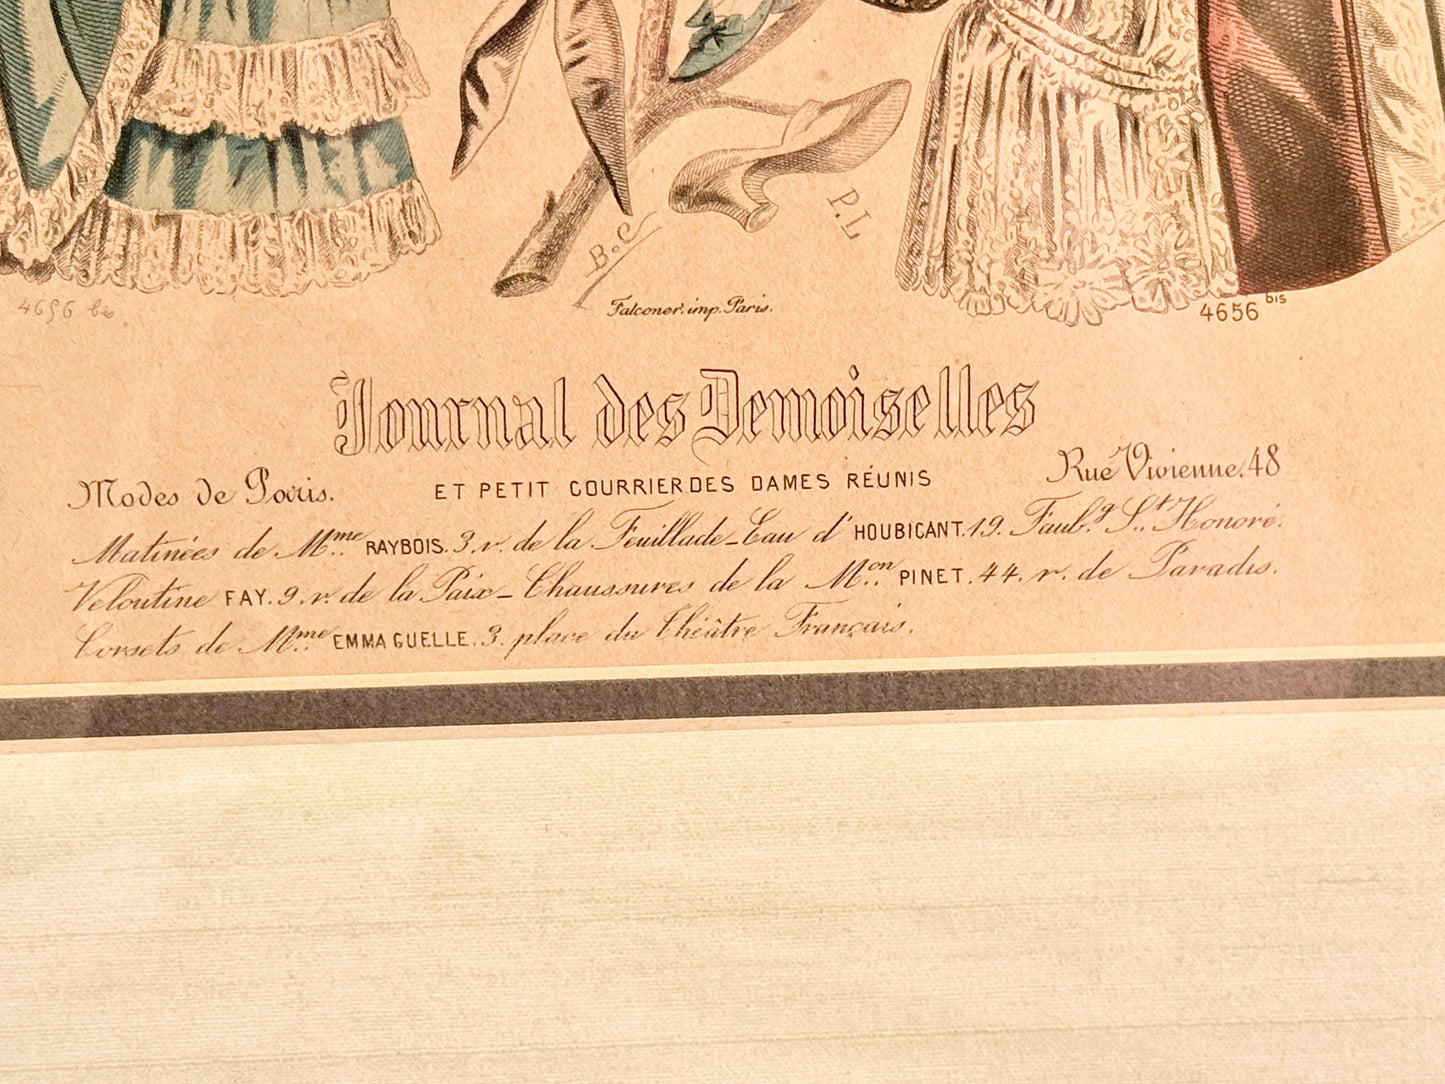 B.C
P.L
4656 bis
Falconer. imp. Paris.
4656 bis
Journal des Demoiselles
Modes de Paris. ET PETIT COURRIER DES DAMES RÉUNIS Rue Vivienne. 48
Matinées de Mme. RAYBOIS. 3. r. de la Feuillade _ Eau d' HOUBIGANT. 19. Faubg. St. Honoré.
Veloutine FAY. 9. r. de la Paix _ Chaussures de la Mon. PINET. 44. r. de Paradis.
Corsets de Mme. EMMA GUELLE. 3. place du Théâtre Français.